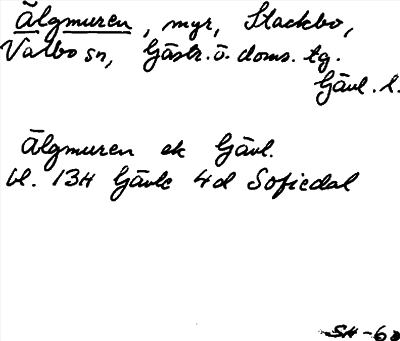 Älgmuren, myr, Stackbo,
Valbo sn, Gästr. ö. doms. tg.
Gävl. l.
Älgmuren ek Gävl.
bl. 13H Gävle 4d Sofiedal
SH-60